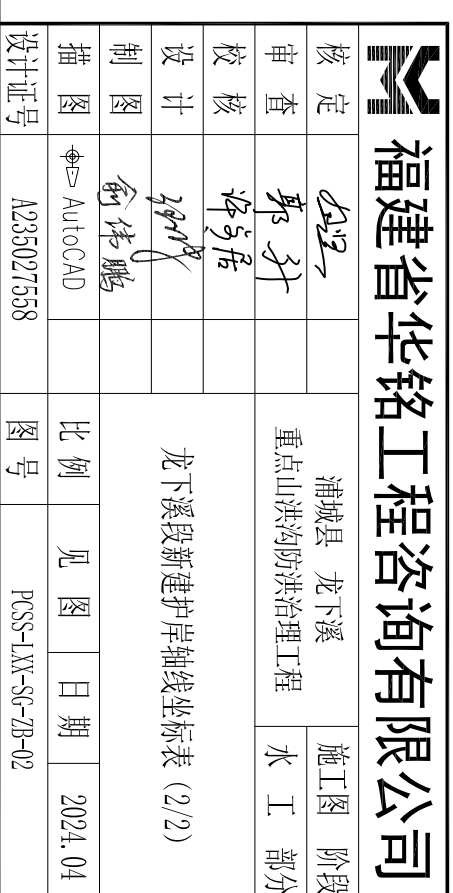 福建省华铭工程咨询有限公司
核 定
浦城县 龙下溪
重点山洪沟防洪治理工程
施工图 阶段
审 查
郭升
水 工 部分
校 核
设 计
龙下溪段新建护岸轴线坐标表 (2/2)
制 图
俞伟鹏
描 图
AutoCAD
比 例
见 图
日 期
2024.04
设计证号
A235027558
图 号
PCSS-LXX-SG-ZB-02